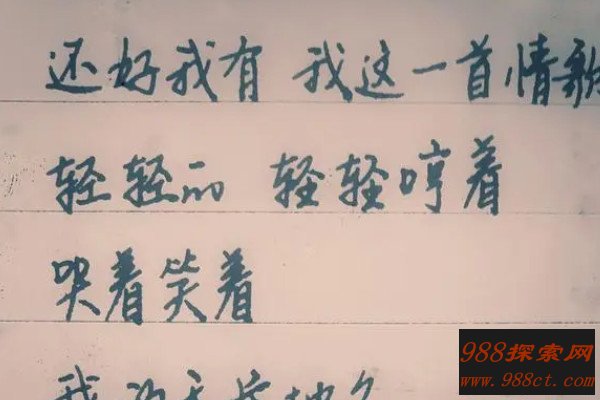 还好我有 我这一首情歌
轻轻的 轻轻哼着
哭着笑着
我的天长地久
988探索网
www.988ct.com